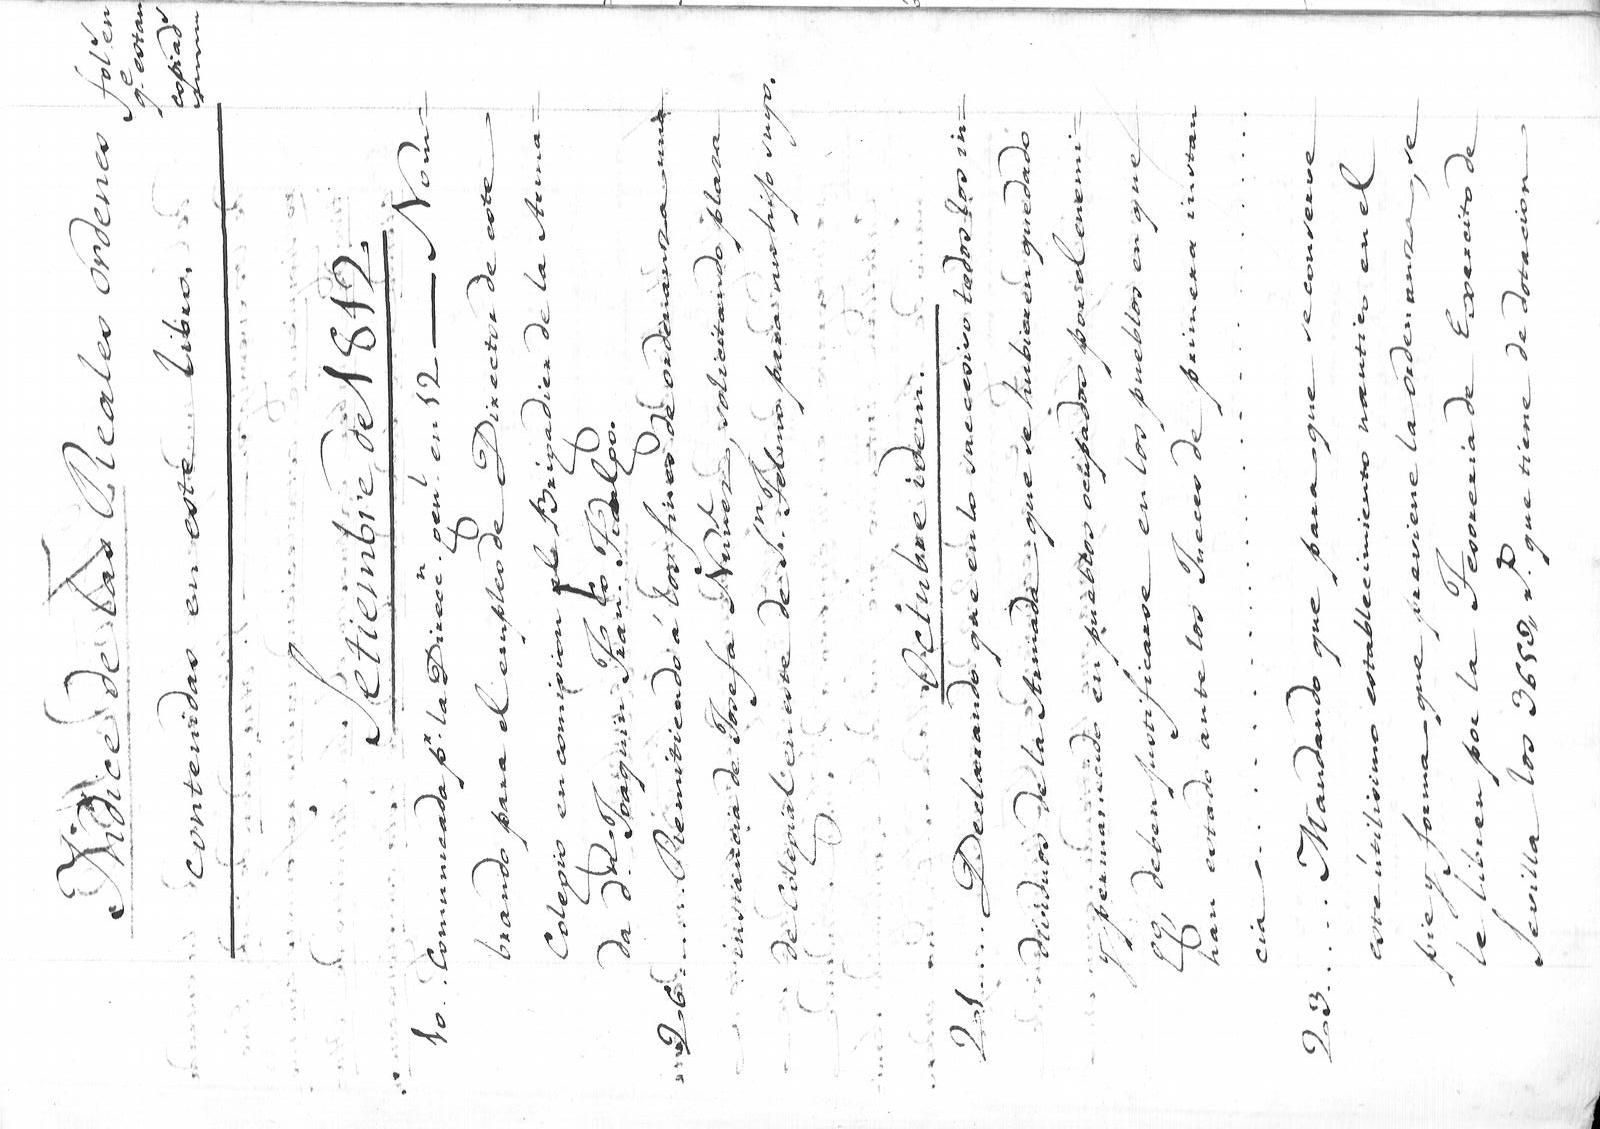 Yndice de las Reales ordenes
contenidas en este Libro.
fol.s en
q.e estan
copiad.s
Setiembre de 1812.
10.. Comunicada p.r la Direcc.n gen.l en 12 — Nom-
brando para el empleo de Director de este
Colegio en comision al Brigadier de la Arma-
da d.n Joaquin Fran.co Fidalgo.
26..... Remitiendo á los fines de ordenanza una
instancia de Josefa Nuñez, solicitando plaza
de Colegial en este de S.n Telmo para un hijo suyo.
Octubre idem.
21..... Declarando que en lo succesivo todos los in-
dividuos de la Armada que se hubieren quedado
y permanecido en pueblos ocupados por el enemi-
go, deben justificarse en los pueblos en que
han estado ante los Jueces de primera instan
cia
23.... Mandando que para que se conserve
este útilisimo establecimiento nautico en el
pie y forma que previene la ordenanza, se
le libren por la Tesoreria de Exercito de
Sevilla los 3650 r.s que tiene de dotacion